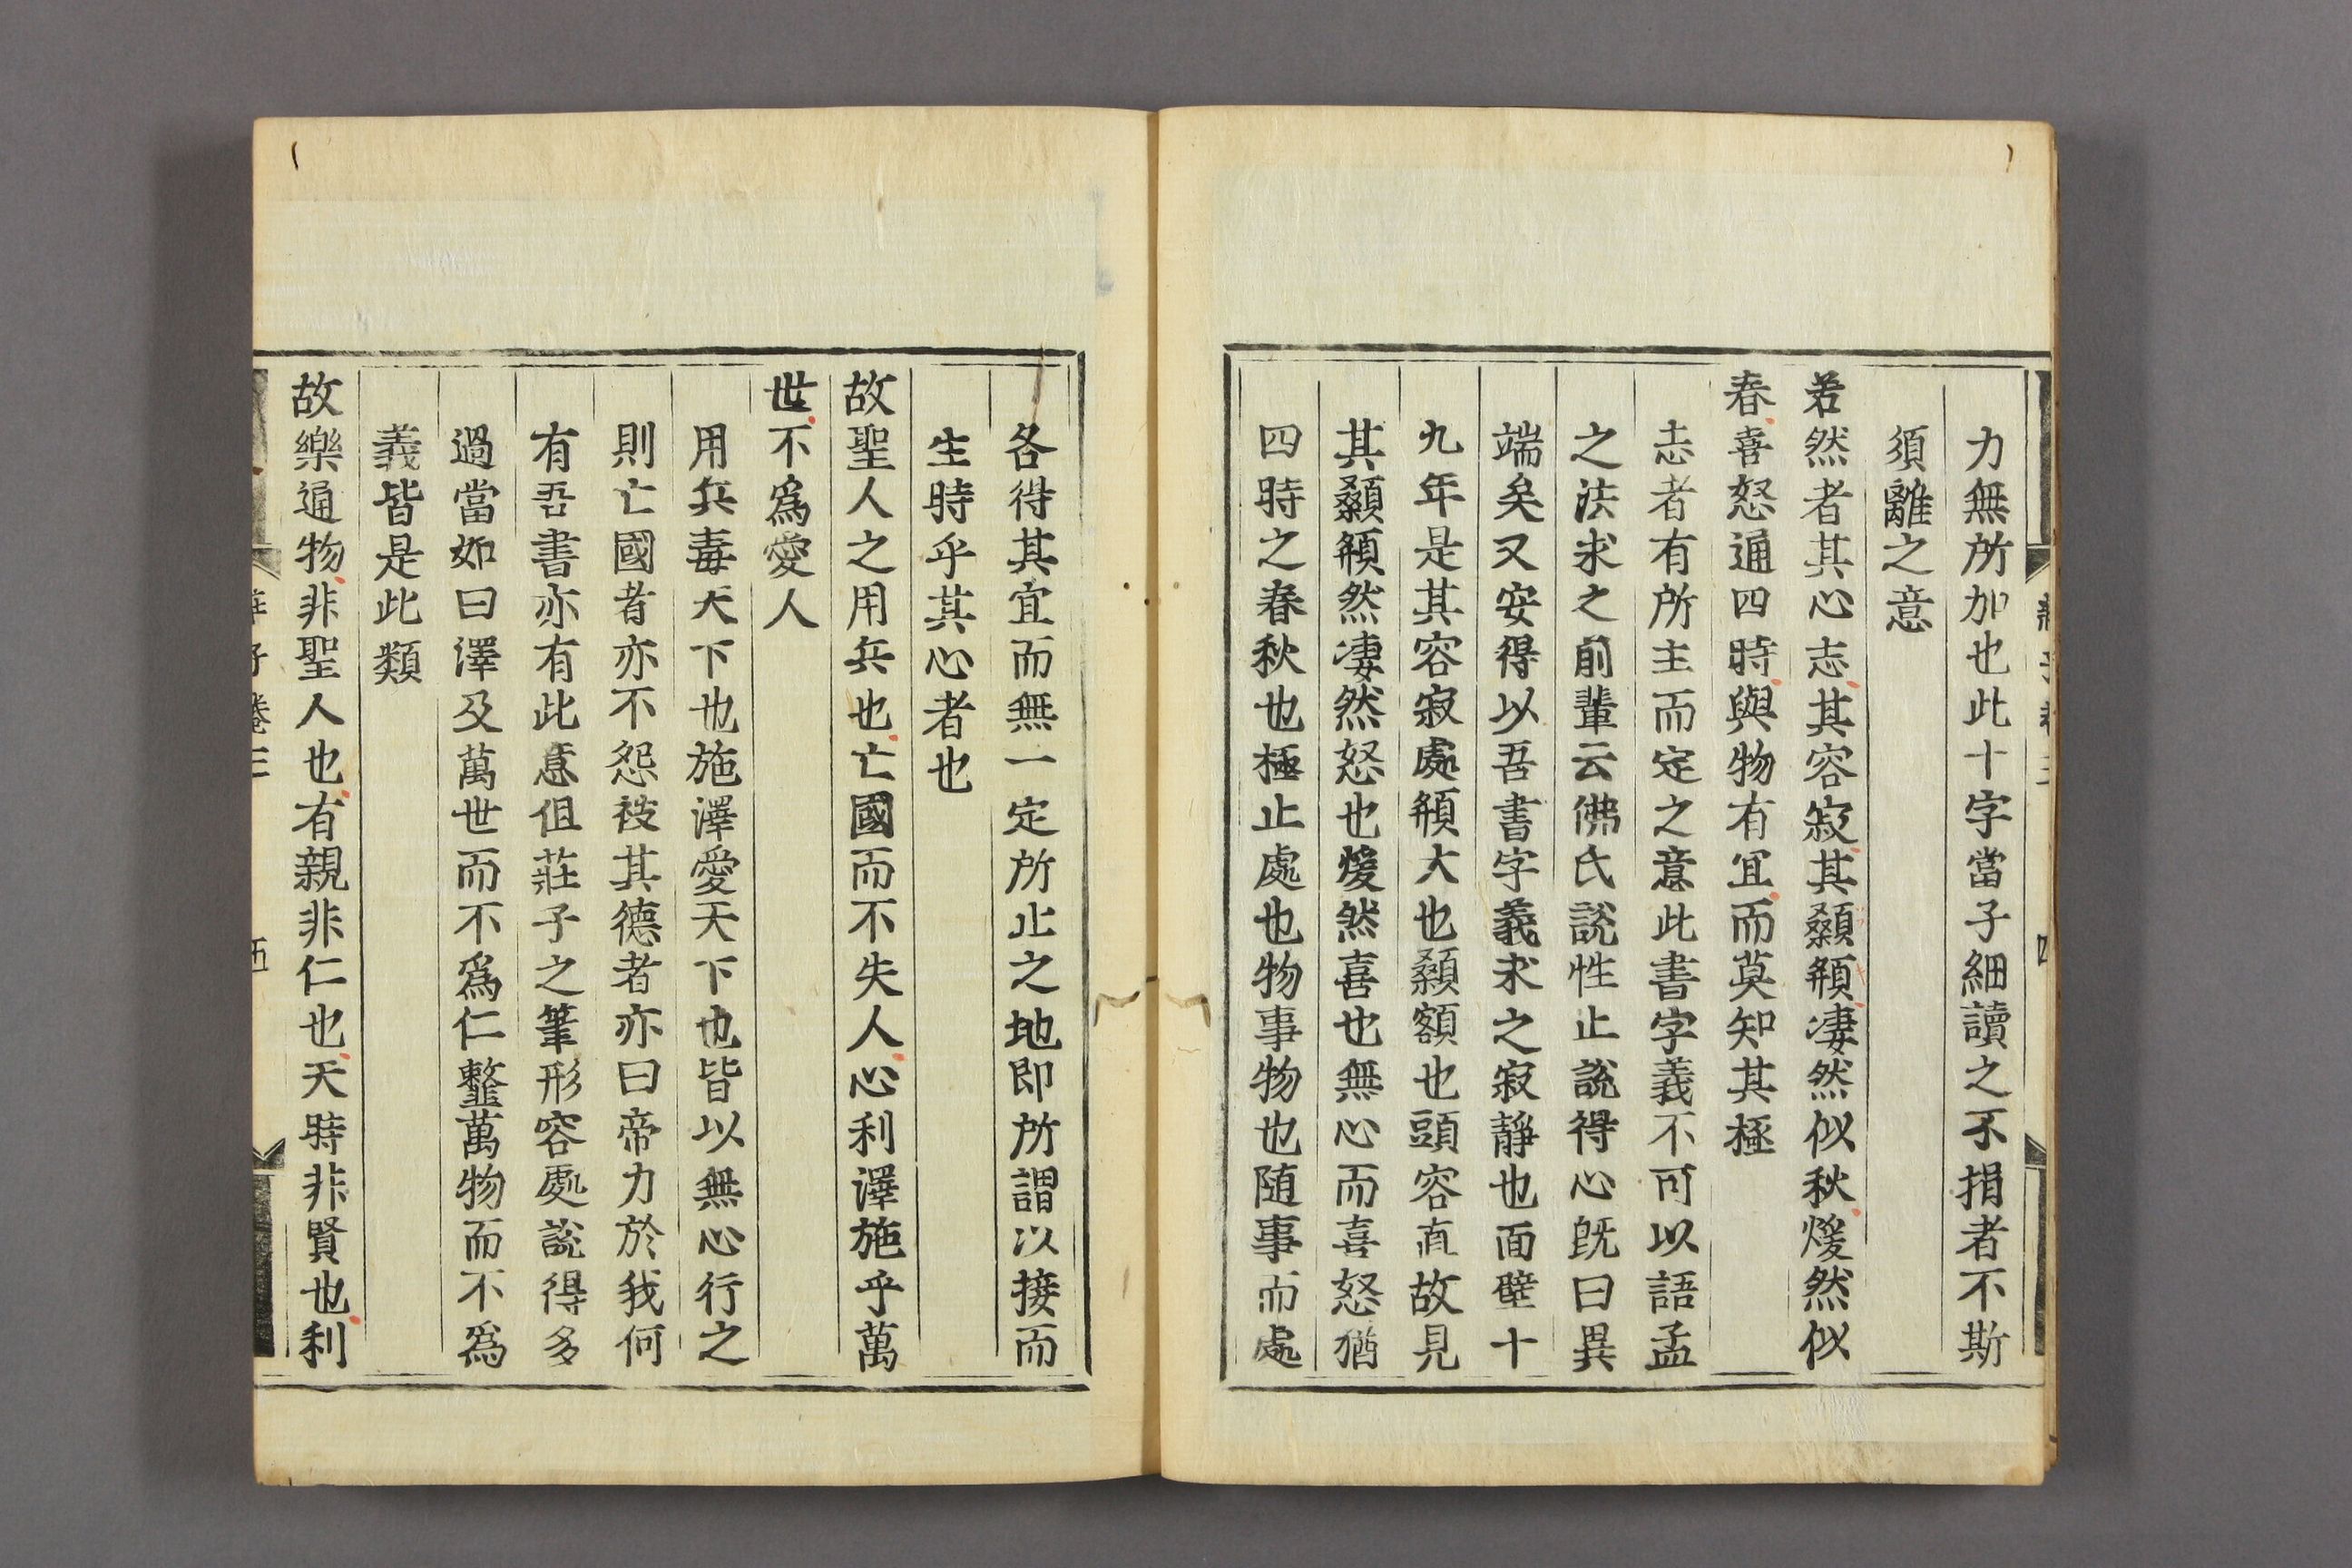 力無所加也此十字當子細讀之不捐者不斯
須離之意
若然者其心志其容寂其顙頯凄然似秋煖然似
春喜怒通四時與物有宜而莫知其極
志者有所主而定之意此書字義不可以語孟
之法求之前輩云佛氏說性止說得心既曰異
端矣又安得以吾書字義求之寂靜也面壁十
九年是其容寂處頯大也顙額也頭容直故見
其顙頯然凄然怒也煖然喜也無心而喜怒猶
四時之春秋也極止處也物事物也随事而處
各得其宜而無一定所止之地即所謂以接而
生時乎其心者也
故聖人之用兵也亡國而不失人心利澤施乎萬
世不爲愛人
用兵毒天下也施澤愛天下也皆以無心行之
則亡國者亦不怨被其德者亦曰帝力於我何
有吾書亦有此意但莊子之筆形容處說得多
過當如曰澤及萬世而不爲仁䪠萬物而不爲
義皆是此類
故樂通物非聖人也有親非仁也天時非賢也利
莊子卷三
五